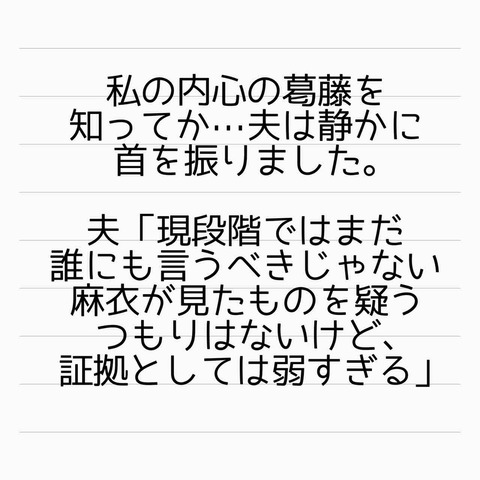 私の内心の葛藤を
知ってか…夫は静かに
首を振りました。
夫「現段階ではまだ
誰にも言うべきじゃない
麻衣が見たものを疑う
つもりはないけど、
証拠としては弱すぎる」